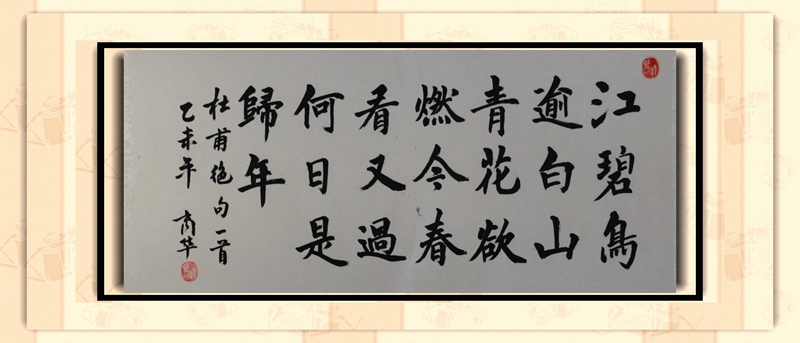 江碧鳥
逾白山
青花欲
燃今春
看又過
何日是
歸年
杜甫絕句一首
乙未年 华